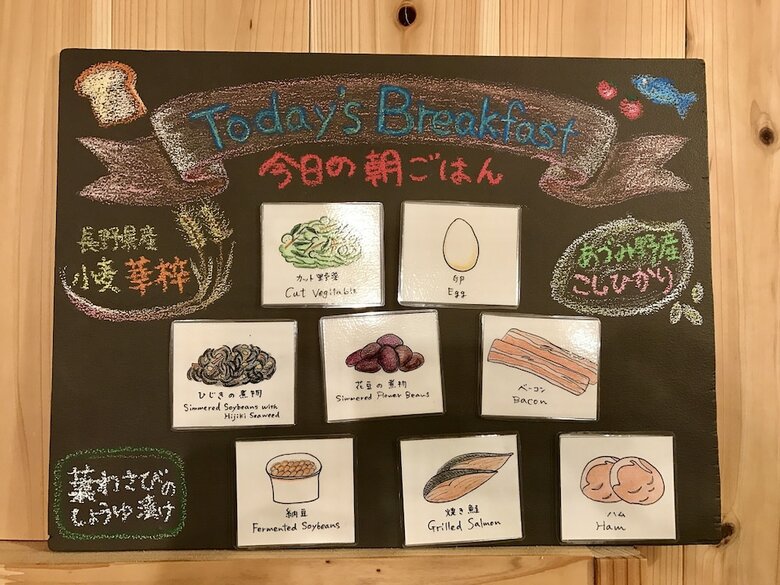 Today's Breakfast
今日の朝ごはん
長野県産
小麦 華梓
あづみ野産
こしひかり
カット野菜
Cut Vegitable
卵
Egg
ひじきの煮物
Simmered Soybeans with
Hijiki Seaweed
花豆の煮物
Simmered Flower Beans
ベーコン
Bacon
葉わさびの
しょうゆ漬け
納豆
Fermented Soybeans
焼き鮭
Grilled Salmon
ハム
Ham